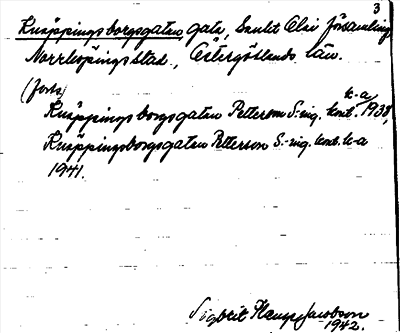 3
Knäppingsborgsgatan gata, Sankt Olai församling
Norrköpings stad, Östergötlands län.
(forts)
Knäppingsborgsgatan Petterson S:-ing. kont. k-a 1938,
Knäppingsborgsgatan Petterson S:-ing. kont. k-a
1941.
Sigbrit Jacobson
1942.